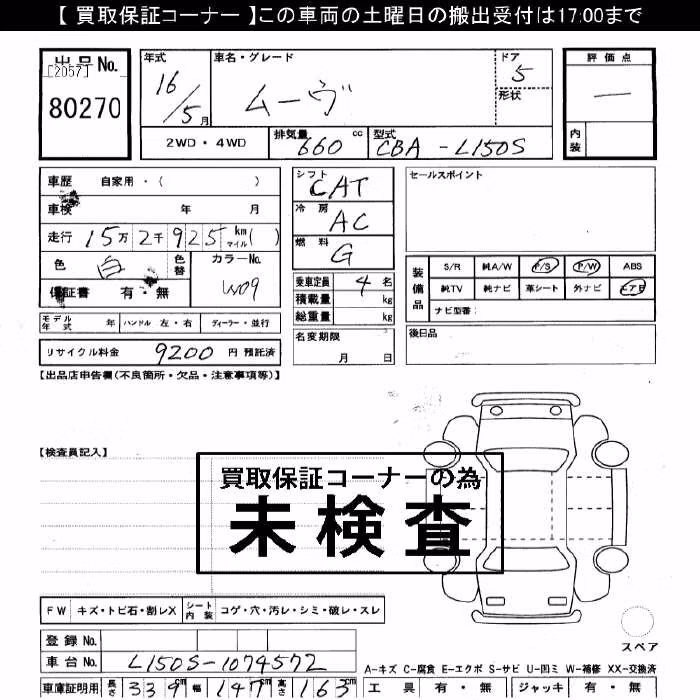 【 買取保証コーナー 】この車両の土曜日の搬出受付は17:00まで
出品 No.
[2057]
80270
年式
16/5月
車名・グレード
ムーヴ
ドア
5
形状
評価点
—
内装
2WD・4WD
排気量 660 cc
型式 CBA-L150S
車歴 自家用・( )
車検 年 月
走行 15万2千925 km マイル( )
色 白 色替 カラーNo. W09
保証書 有・無
モデル年式 年 ハンドル 左・右 ディーラー・並行
リサイクル料金 9200 円 預託済
シフト CAT
冷房 AC
燃料 G
乗車定員 4 名
積載量 kg
総重量 kg
名変期限
月 日
セールスポイント
装備品
S/R 純A/W P/S P/W ABS
純TV 純ナビ 革シート 外ナビ エアB
ナビ型番:
後日品
【出品店申告欄(不良箇所・欠品・注意事項等)】
【検査員記入】
買取保証コーナーの為
未検査
FW キズ・トビ石・割レX シート内装 コゲ・穴・汚レ・シミ・破レ・スレ
登録 No.
車台 No. L150S-1074572
車庫証明用 長さ 339cm 幅 147cm 高さ 163cm
スペア
A-キズ C-腐食 E-エクボ S-サビ U-凹ミ W-補修 XX-交換済
工具 有・無 ジャッキ 有・無